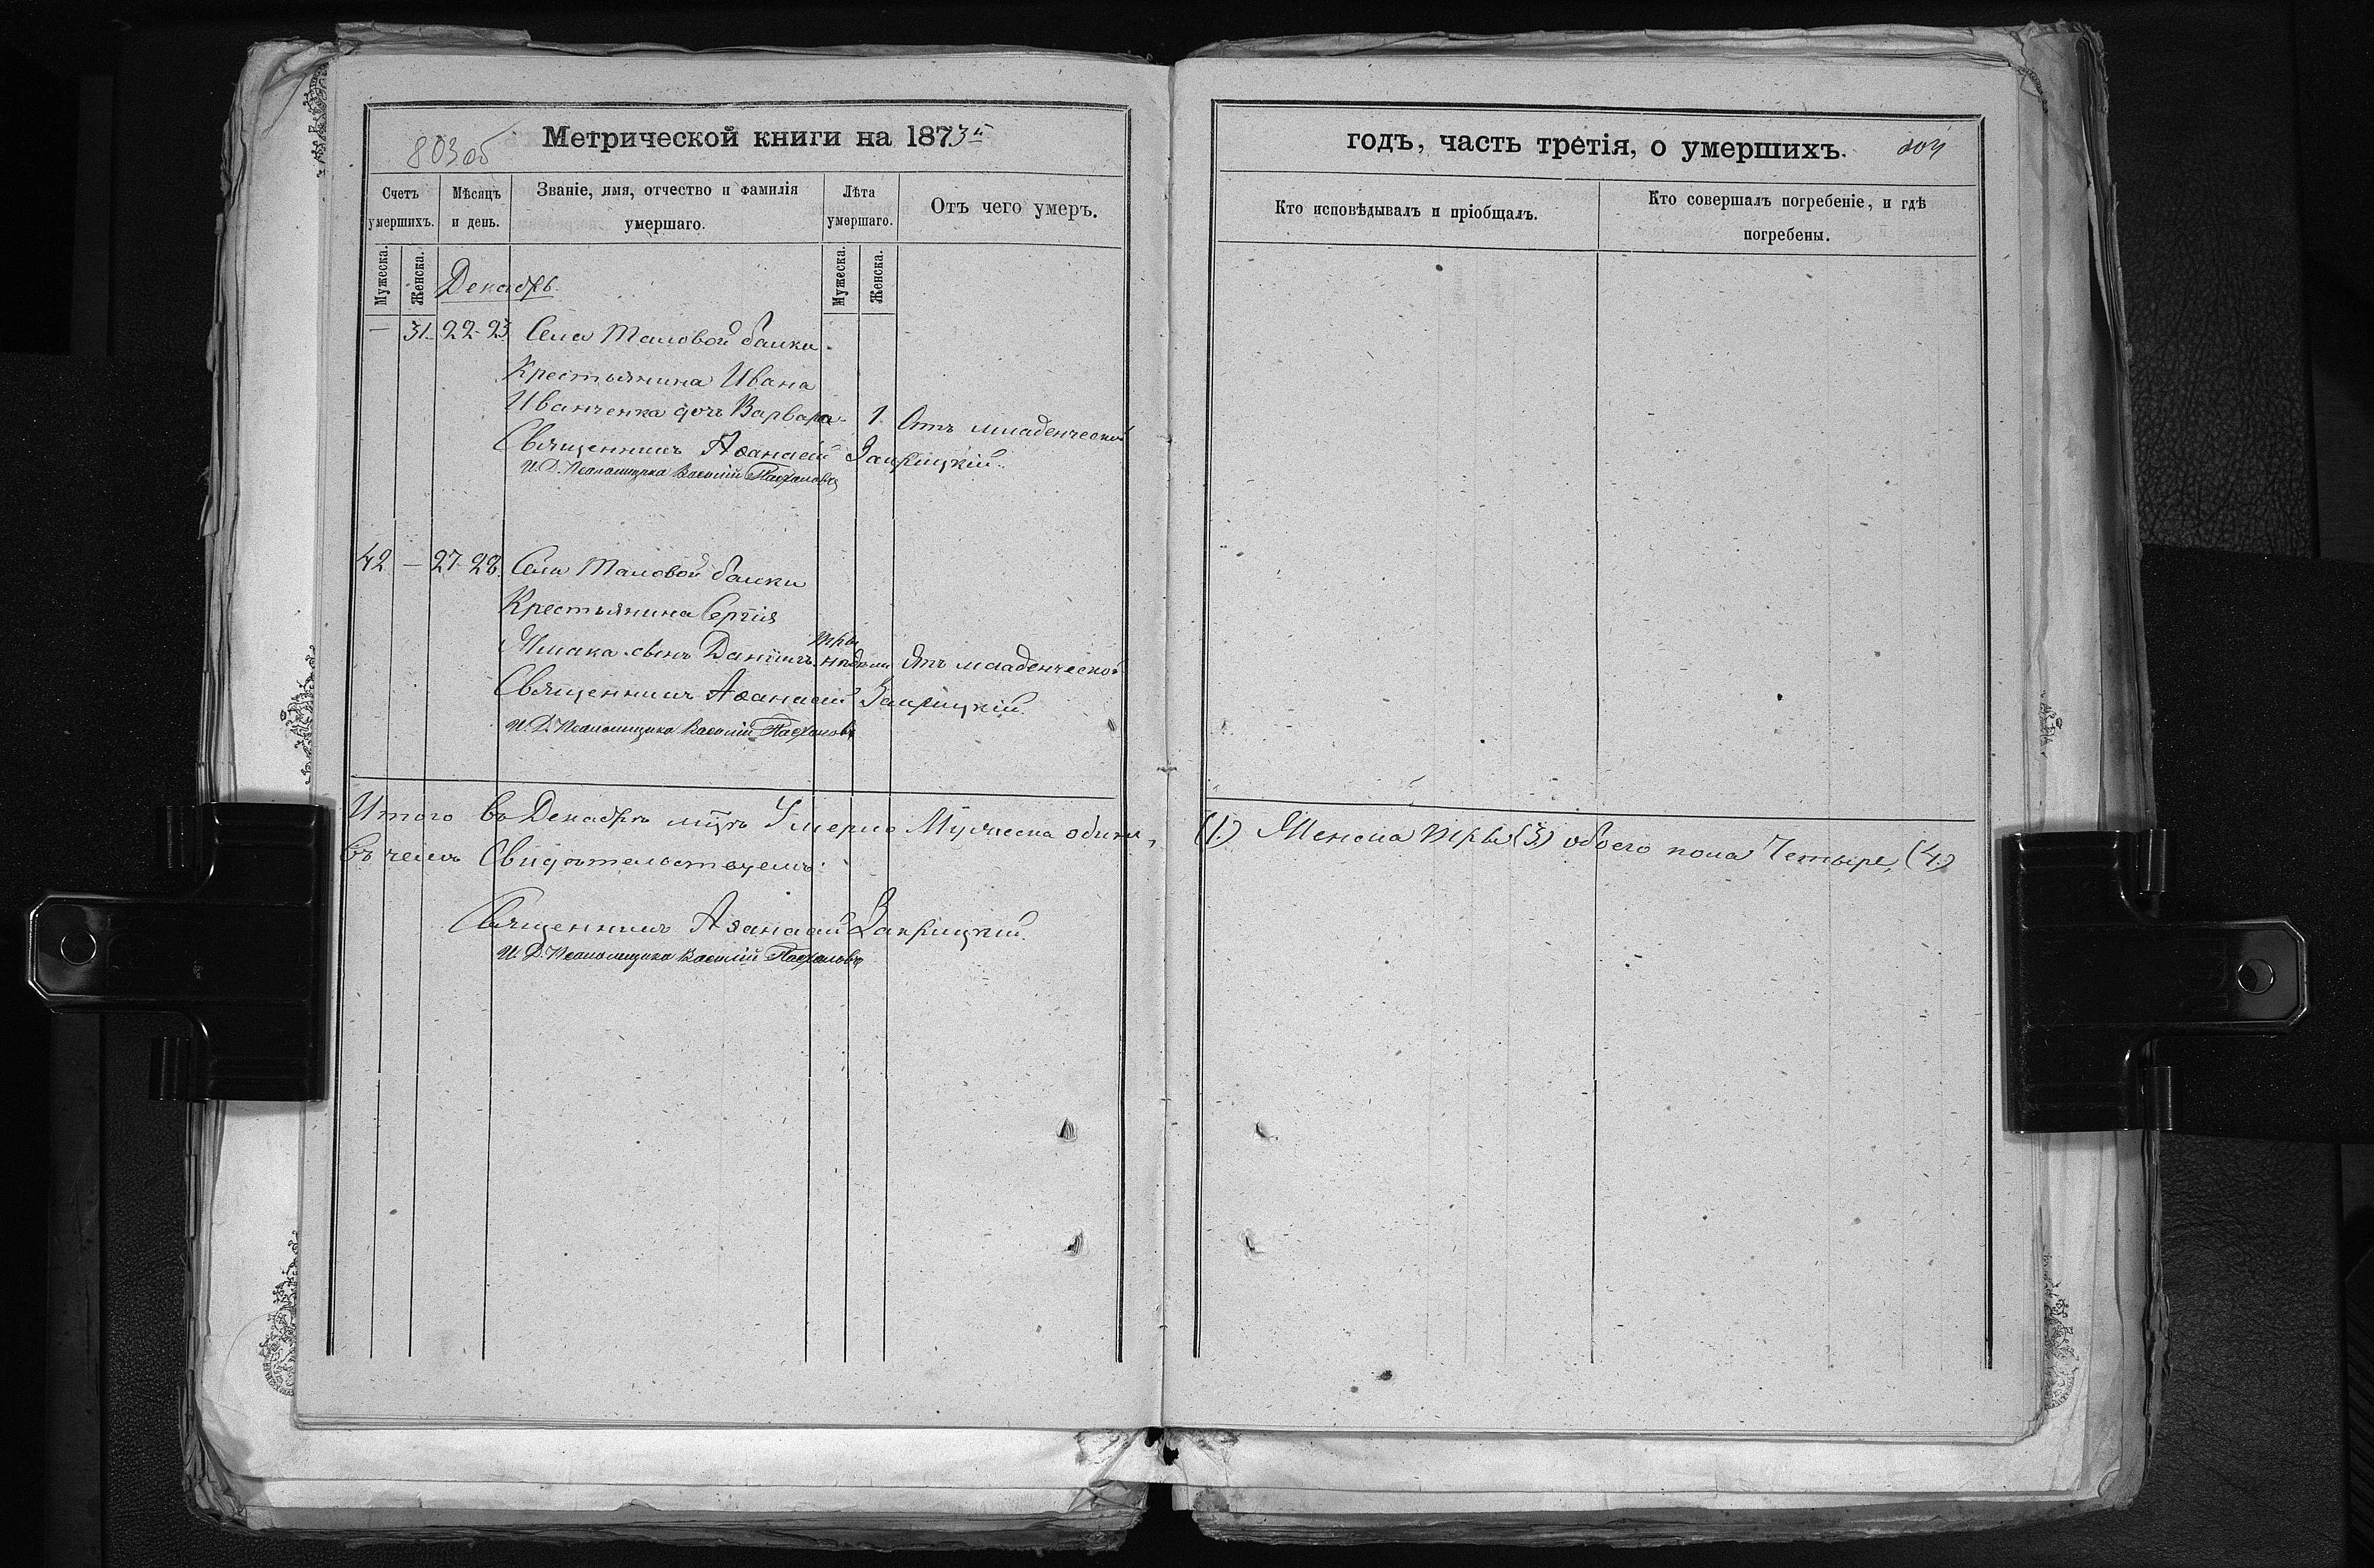 803об
Метрической книги на 1873й
Счетъ умершихъ.
Мѣсяцъ и день.
Званіе, имя, отчество и фамилія умершаго.
Лѣта умершаго.
Отъ чего умеръ.
Мужеска.
Женска.
Мужеска.
Женска.
Декабрь
— 31 22-23 Села Таловой балки
Крестьянина Ивана
Иванченка дочь Варвара 1 Отъ младенческой
Священникъ Аѳанасій Закрицкій
И. Д. Псаломщика Василій
42 — 27-28 Села Таловой балки
Крестьянина Сергія
сынъ Даніилъ три недели Отъ младенческой
Священникъ Аѳанасій Закрицкій
И. Д. Псаломщика Василій
Итого въ Декабрѣ м͠цѣ Умерло Мужеска одинъ,
въ чемъ Свидѣтельствуемъ:
Священникъ Аѳанасій Закрицкій
И. Д. Псаломщика Василій
годъ, часть третія, о умершихъ.
804
Кто исповѣдывалъ и пріобщалъ.
Кто совершалъ погребеніе, и гдѣ погребены.
(1.) Женска три (3.) обоего пола Четыре, (4.)